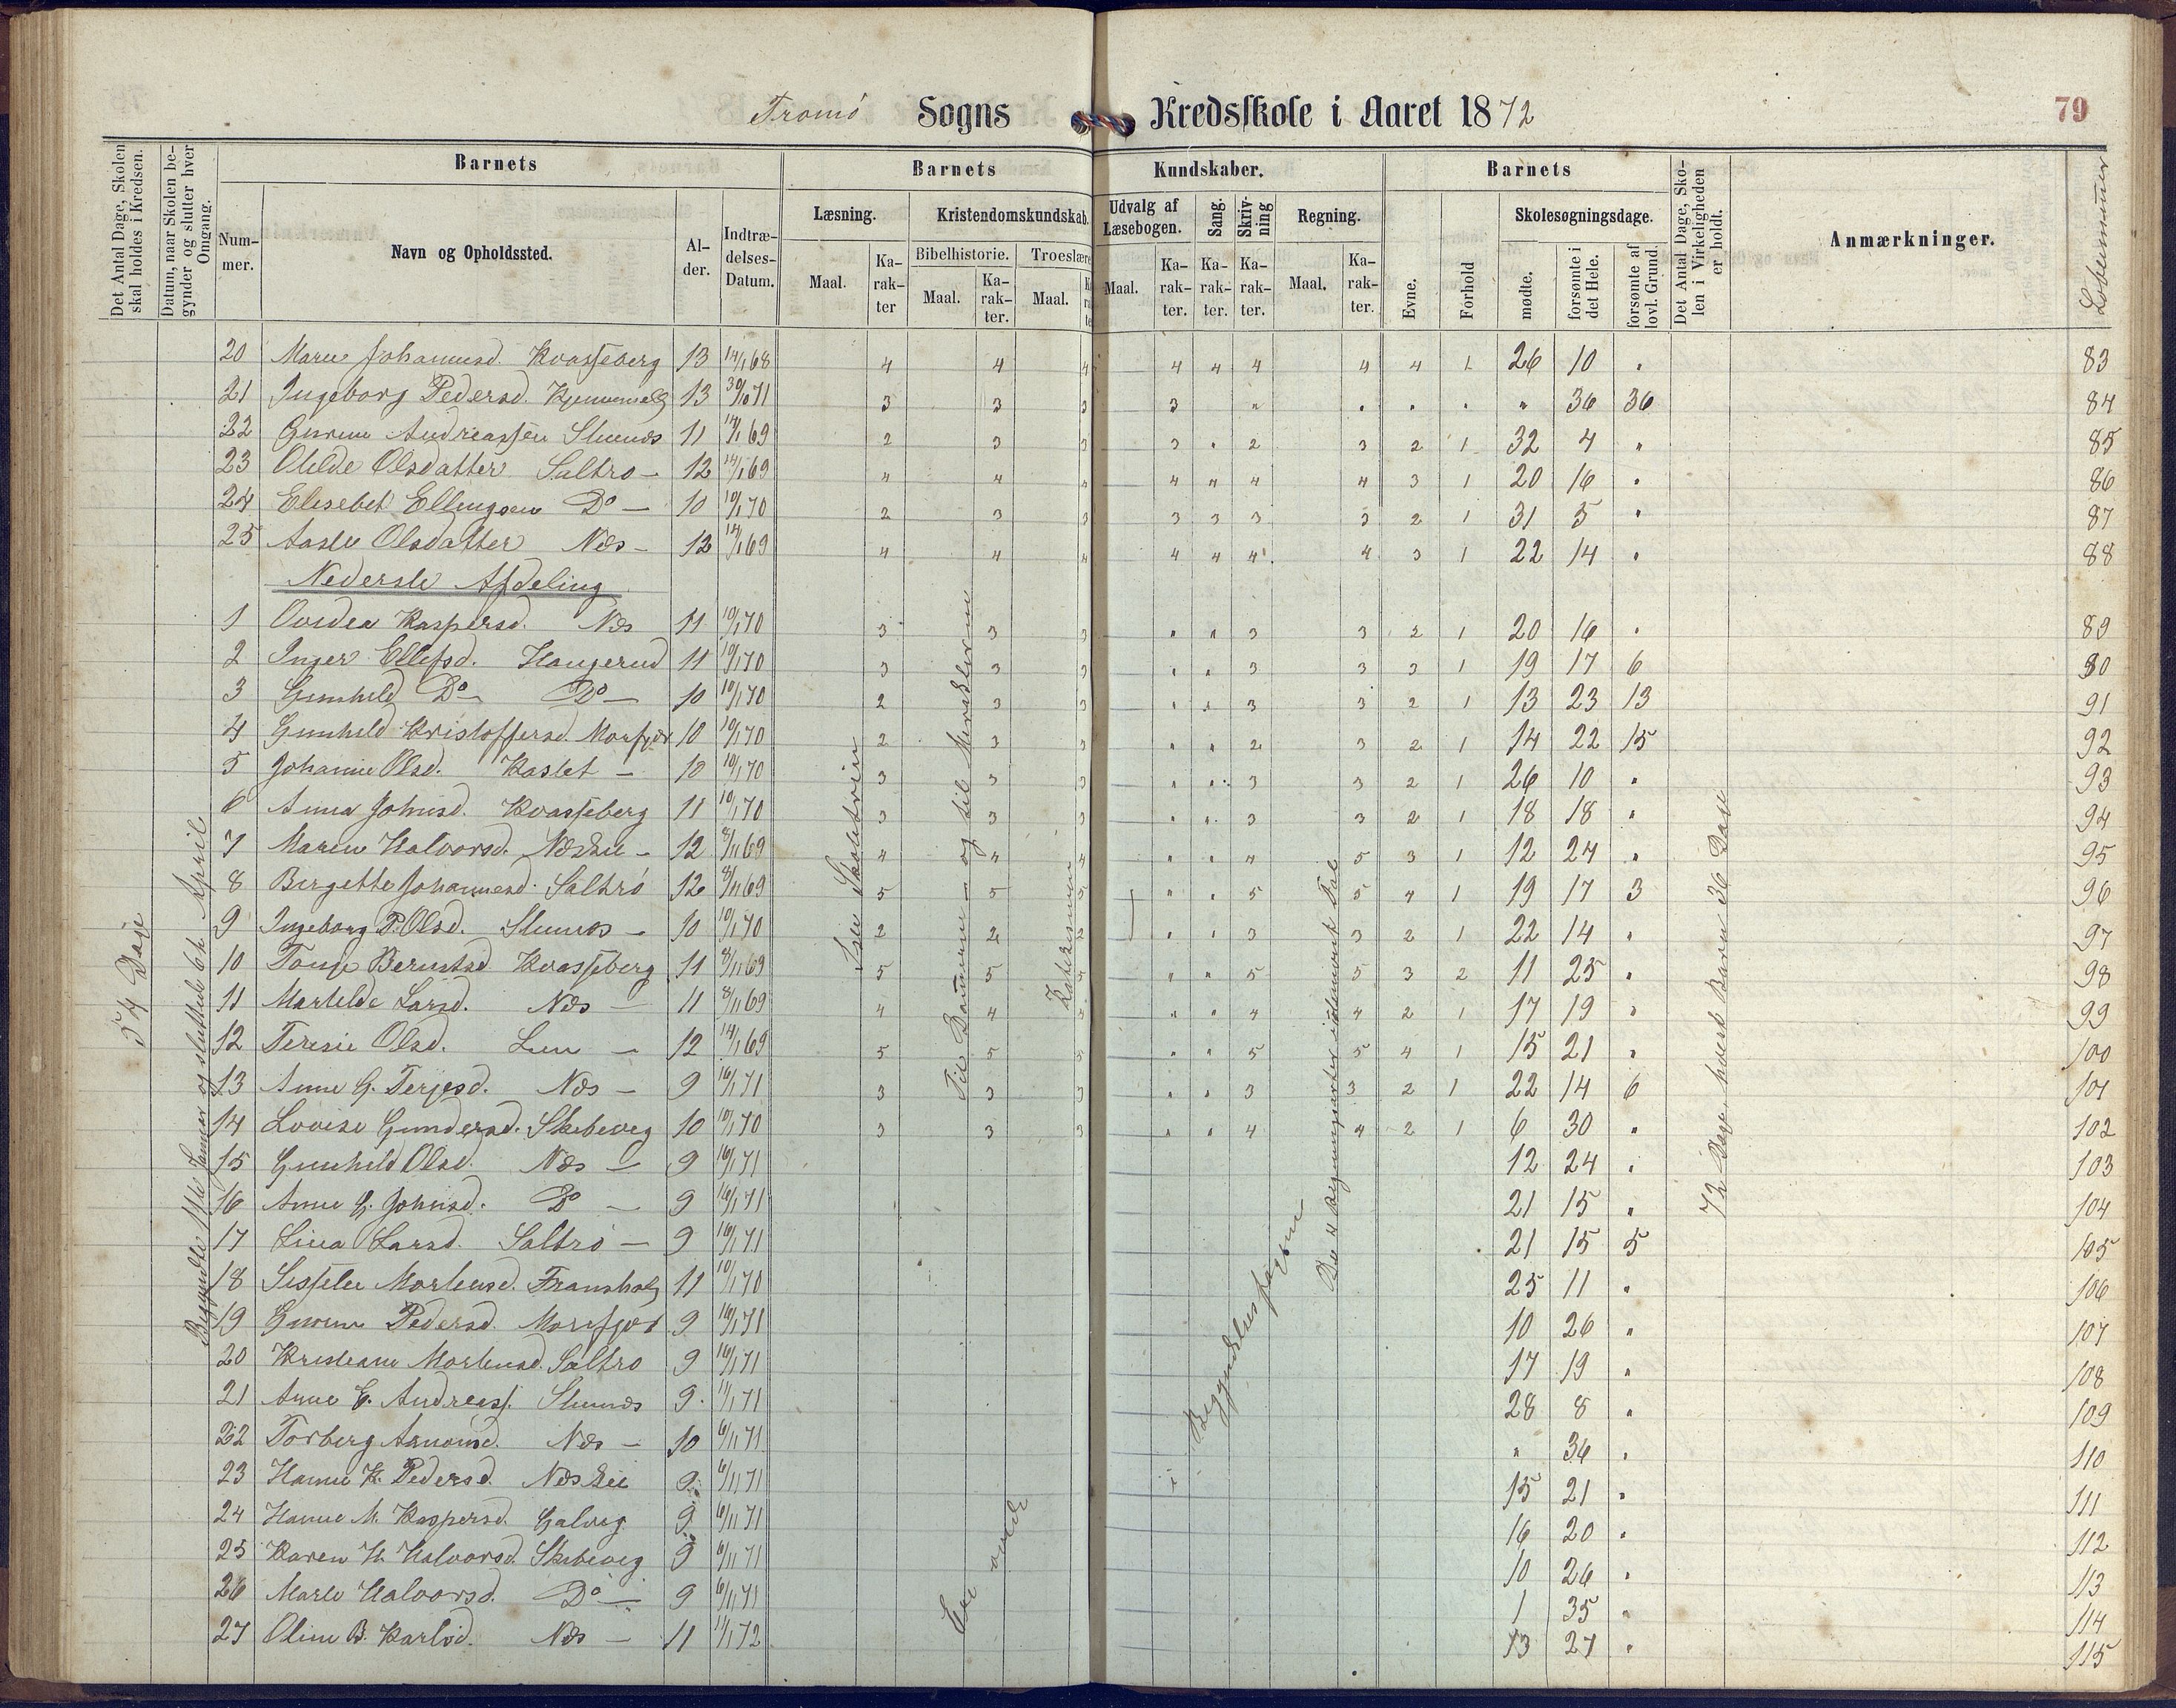 Tromö Sogns Kredsskole i Aaret 1872
79
Det Antal Dage, Skolen skal holdes i Kredsen.
Datum, naar Skolen begynder og slutter hver Omgang.
Barnets
Nummer.
Navn og Opholdssted.
Alder.
Indtrædelses-Datum.
Barnets Kundskaber.
Læsning.
Maal.
Karakter
Kristendomskundskab.
Bibelhistorie.
Maal.
Karakter.
Troeslære
Maal.
Udvalg af Læsebogen.
Maal.
Karakter.
Sang.
Karakter.
Skrivning
Karakter.
Regning.
Maal.
Karakter.
Barnets
Evne.
Forhold
Skolesøgningsdage.
mødte.
forsømte i det Hele.
forsømte af lovl. Grund.
Det Antal Dage, Skolen i Virkeligheden er holdt.
Anmærkninger.
Løbenummer
20 Maren Johannesd. Kvasseberg 13 14/1 68 4 4 4 4 4 4 4 4 1 26 10 " 83
21 Ingeborg Pedersd. 13 30/10 71 3 3 3 3 " " " " " 36 36 84
22 Gurine Andreassen 11 14/1 69 2 3 3 3 " 2 3 2 1 32 4 " 85
23 Olilde Olsdatter Saltrø 12 14/1 69 4 4 4 4 4 4 4 3 1 20 16 " 86
24 Elisebet Ellingsen Do 10 10/1 70 2 3 3 3 3 3 3 2 1 31 5 " 87
25 Olsdatter Næs 12 14/1 69 4 4 4 4 4 4 4 3 1 22 14 " 88
Nederste Afdeling
1 Kaspersd. Næs 11 10/1 70 3 3 3 " " 3 3 2 1 20 16 " 89
2 Inger Ellefsd. Haugerud 11 10/1 70 3 3 3 " " 3 3 3 1 19 17 6 90
3 Gunhild Do Do 10 10/1 70 2 3 3 " " 3 3 2 1 13 23 13 91
4 Gunhild Kristoffersd. Morfjær 10 10/1 70 2 3 3 " " 2 3 2 1 14 22 15 92
5 Johanne Olsd. Kastet 10 10/1 70 3 3 3 " " 3 3 2 1 26 10 " 93
6 Anna Johnsd. Kvasseberg 11 10/1 70 3 3 3 " " 3 3 2 1 18 18 " 94
7 Maren Halvorsd. Næskil 12 8/11 69 4 4 4 " " 4 5 3 1 12 24 " 95
8 Birgette Johannesd. Saltrø 12 8/11 69 5 5 5 " " 5 5 4 1 19 17 3 96
9 Ingeborg P. Olsd. 10 10/1 70 2 2 2 " " 3 3 2 1 22 14 " 97
10 Tonje Berntsd Kvasseberg 11 8/11 69 5 5 5 " " 5 5 3 2 11 25 " 98
11 Martilde Larsd. Næs 11 8/11 69 4 4 4 " " 4 4 2 1 17 19 " 99
12 Teresie Olsd. 12 14/1 69 5 5 5 " " 5 5 4 1 15 21 " 100
13 Anne G. Terjesd. Næs 9 16/1 71 3 3 3 " " 3 3 2 1 22 14 6 101
14 Lovise Gundersd. Skibeveg 10 10/1 70 3 3 3 " " 4 4 2 1 6 30 " 102
15 Gunhild Olsd. Næs 9 16/1 71 12 24 " 103
16 Anne G. Johnsd. Do 9 16/1 71 21 15 " 104
17 Lina Larsd. Saltrø 9 16/1 71 21 15 5 105
18 Sissele Mortensd. 11 10/1 70 25 11 " 106
19 Gurine Pedersd. Morefjær 9 16/1 71 10 26 " 107
20 Kristiane Mortensd. Saltrø 9 16/1 71 17 19 " 108
21 Anne E. Andreass. 9 11/1 71 28 8 " 109
22 Torberg Næs 10 6/11 71 " 36 " 110
23 Hanne K. Pedersd. Næskil 9 6/11 71 15 21 " 111
24 Hanne M. Kaspersd. Galveg 9 6/11 71 16 20 " 112
25 Karen H. Halvorsd. Skibeveg 9 6/11 71 10 26 " 113
26 Halvorsd. Do 9 6/11 71 1 35 " 114
27 Oline B. Karlsd. Næs 11 11/1 72 13 27 " 115
54 Dage
Begyndte 11te Januar og sluttede 6te April
Til Bønnene og til Miraklerne
Katekismen
De 4 Regningsarter i ubenævnt Tal
Begyndelsesfagene
72 Dage hvert Barn 36 Dage